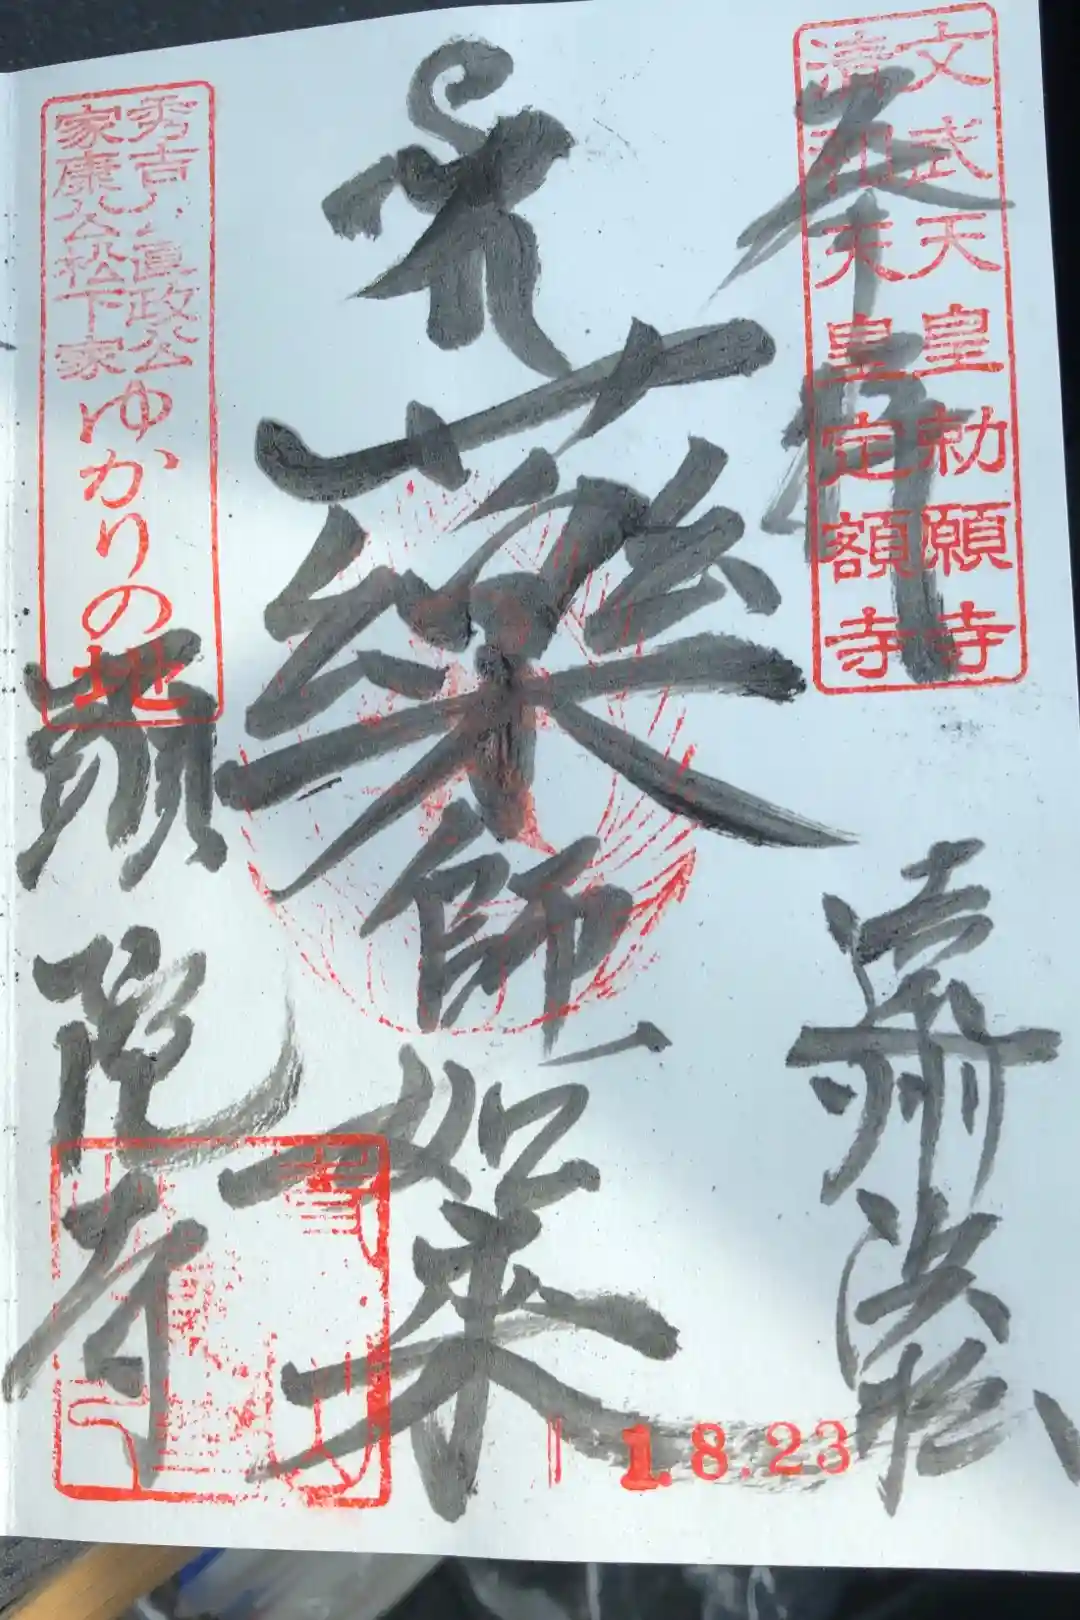 文武天皇勅願寺
清和天皇定額寺
奉拝
薬師如来
頭陀寺
秀吉公直政公
家康公松下家
ゆかりの地
1.8.23